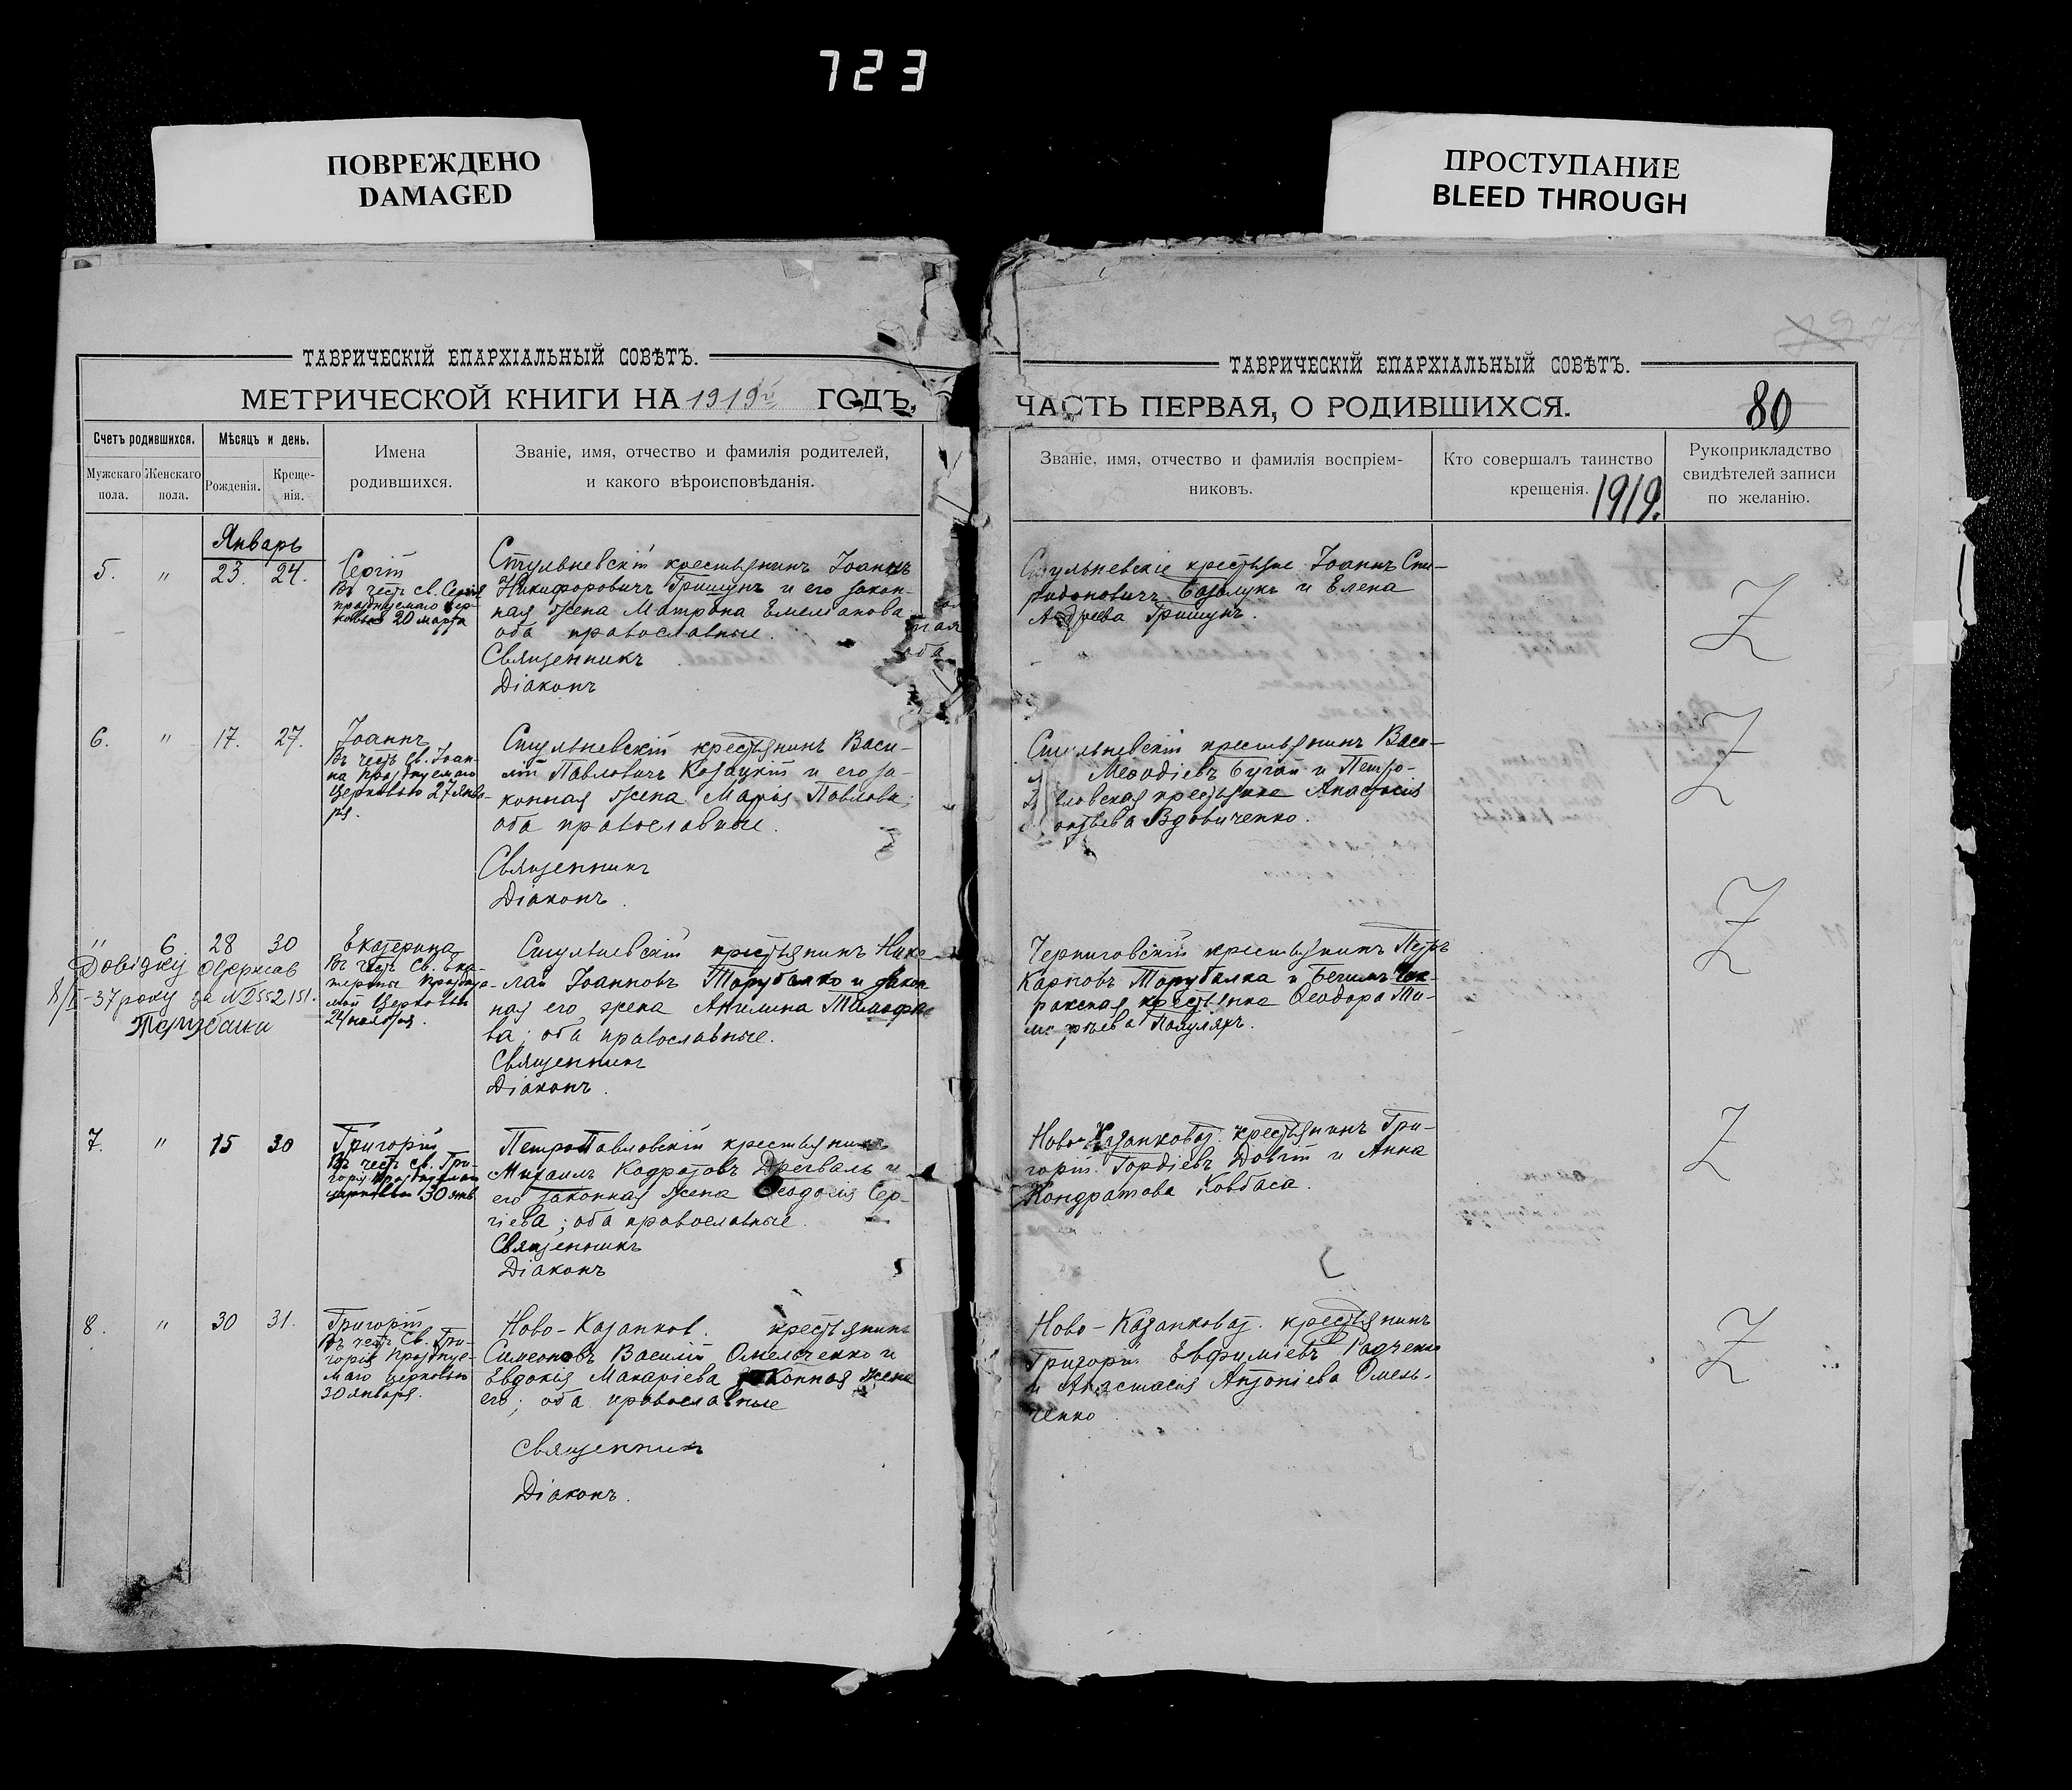 723
ПОВРЕЖДЕНО
DAMAGED
ПРОСТУПАНИЕ
BLEED THROUGH
ТАВРИЧЕСКІЙ ЕПАРХІАЛЬНЫЙ СОВѢТЪ.
МЕТРИЧЕСКОЙ КНИГИ НА 1919й ГОДЪ,
Счетъ родившихся.
Мѣсяцъ и день.
Имена
родившихся.
Званіе, имя, отчество и фамилія родителей,
и какого вѣроисповѣданія.
Мужскаго
пола.
Женскаго
пола.
Рожденія.
Креще-
нія.
Январь
5. " 23. 24.
Сергій
Въ честь св. Сергія
празднуемаго цер-
ковью 20 марта
Стульневскій крестьянинъ Іоаннъ
Никифоровичъ Гришунъ и его закон-
ная жена Матрона Емельянова
оба православные.
Священникъ
Діаконъ
6. " 17. 27.
Іоаннъ
Въ честь св. Іоан-
на празднуемаго
церковью 27 янва-
ря.
Стульневскій крестьянинъ Васи-
лій Павловичъ Козацкій и его за-
конная жена Марія Павлова;
оба православные.
Священникъ
Діаконъ.
" 6 28 30
Довідку одержав
8/I-37 року за №
Тарубалки
Екатерина
Въ честь св. Ека-
терины празднуе-
мой церковью
24 ноября.
Стульневскій крестьянинъ Нико-
лай Іоанновъ Тарубалко и закон
ная его жена Ангелина Тимофе
ва; оба православные.
Священникъ
Діаконъ.
7. " 15 30
Григорій
Въ честь св. Гри-
горія празднуемаго
церковью 30 янв.
ПетроПавловскій крестьянинъ
Михаилъ Кодратовъ Дрегваль и
его законная жена Ѳеодосія Сер-
гіева; оба православные.
Священникъ
Діаконъ
8. " 30 31.
Григорій
Въ честь св. Гри-
горія празднуе-
маго церковью
30 января.
Ново-Казанков. крестьянинъ
Симеоновъ Василій Омельченко и
Евдокія Макаріева законная жена
его; оба православные
Священникъ
Діаконъ.
ТАВРИЧЕСКІЙ ЕПАРХІАЛЬНЫЙ СОВѢТЪ.
ЧАСТЬ ПЕРВАЯ, О РОДИВШИХСЯ.
80
Званіе, имя, отчество и фамилія воспріем-
никовъ.
Кто совершалъ таинство
крещенія.
1919.
Рукоприкладство
свидѣтелей записи
по желанію.
Стульневскіе крестьяне Іоаннъ Спи-
ридоновичъ Базалукъ и Елена
Андреева Гришунъ.
Стульневскій крестьянинъ Васи-
Меѳодіевъ Бугай и Петро-
вловская крестьянка Анастасія
Вдовиченко.
Черниговскій крестьянинъ Петръ
Карповъ Тарубалка и Бегимъ Чок-
ракская крестьянка Ѳеодора
Ново-Казанковат. крестьянинъ Гри-
горій Гордіевъ Довгій и Анна
Кондратова Ковбаса.
Ново-Казанковат. крестьянинъ
Григорій Евфиміевъ Радченко
и Анастасія Антоніева Омель-
ченко